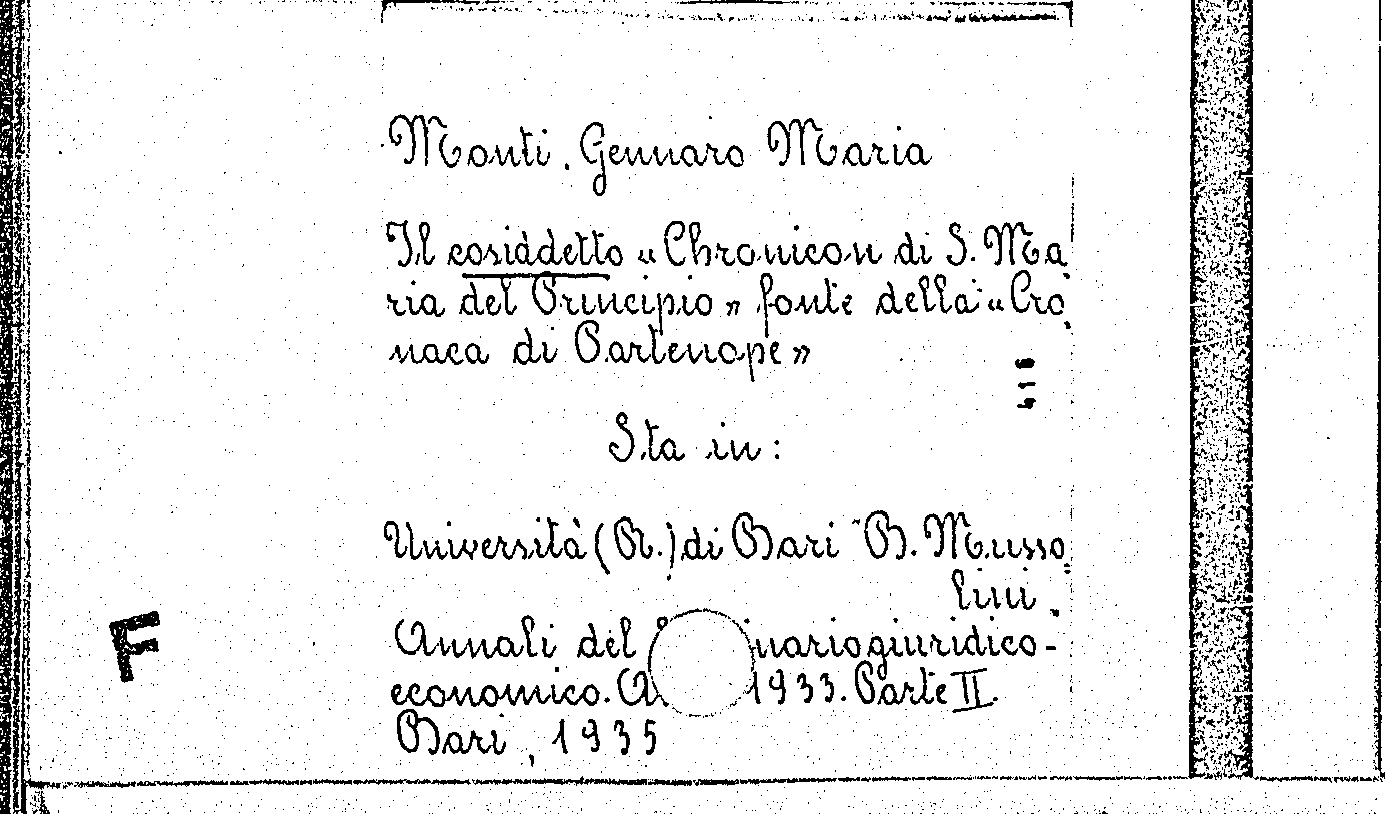 Monti, Gennaro Maria
Il cosiddetto «Chronicon di S. Ma
ria del Principio» fonte della «Cro
naca di Partenope»
Sta in:
Università (R.) di Bari "B. Musso
lini.
Annali del nariogiuridico-
economico. 1933. Parte II.
Bari, 1935
F